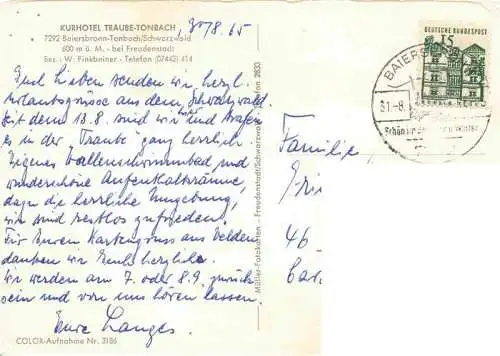 KURHOTEL TRAUBE-TONBACH
7292 Baiersbronn-Tonbach/Schwarzwald
600 m ü. M. - bei Freudenstadt
Bes.: W. Finkbeiner - Telefon (07442) 414
30/8. 65
Euch Lieben senden wir herzl.
Urlaubsgrüsse aus dem Schwarzwald.
Seit dem 13.8. sind wir und
es in der „Traube" ganz herrlich.
Eigenes Hallenschwimmbad und
wunderschöne Aufenthaltsräume,
dazu die herrliche Umgebung,
wir sind restlos zufrieden.
Für Euren Kartengruss aus Velden
danken wir Euch herzlich.
Wir werden am 7. oder 8.9. zurück
sein und von uns hören lassen.
Eure Langes
COLOR-Aufnahme Nr. 3186
Müller-Fotokarten - Freudenstadt/Schwarzwald - Telefon 2833
DEUTSCHE BUNDESPOST
15
BAIERS
31.-8.
Familie
46